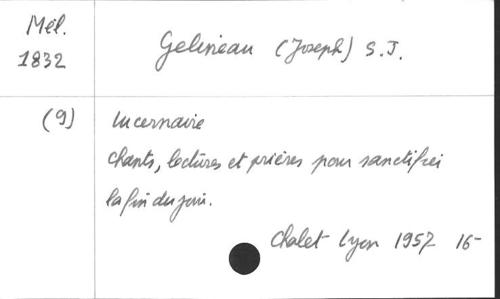 Mél.
1832
Gelineau (Joseph) S.J.
(9)
Lucernaire
Chants, lectures et prières pour sanctifier
la fin du jour.
Chalet Lyon 1957 16-